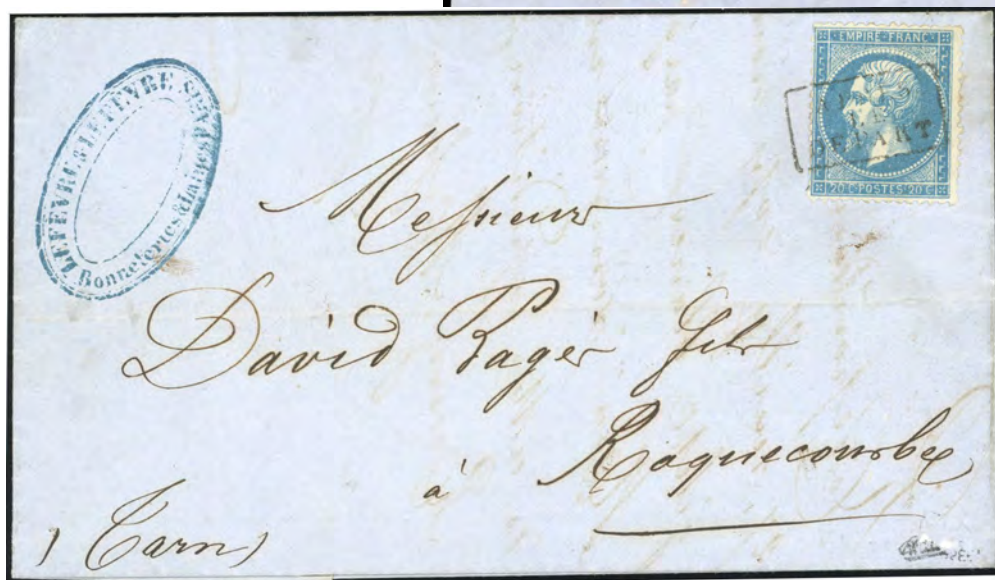 LEFEVRE & LEFEVRE
Bonneteries & Laines
EMPIRE FRANC
20 C POSTES 20 C
Messieurs
David Pagès fils
à Roquecourbe
(Tarn)